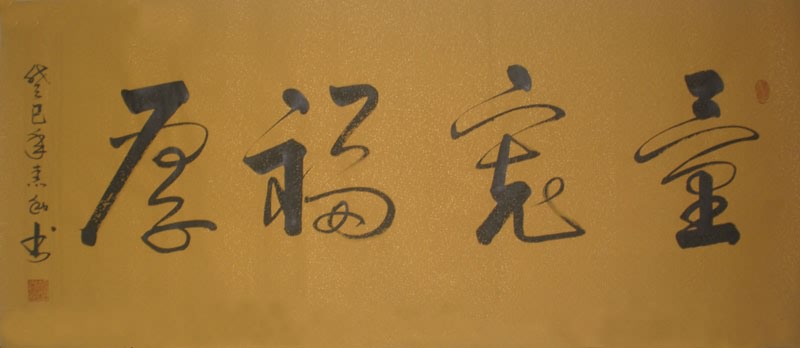 量宽福厚
癸巳年春幼书